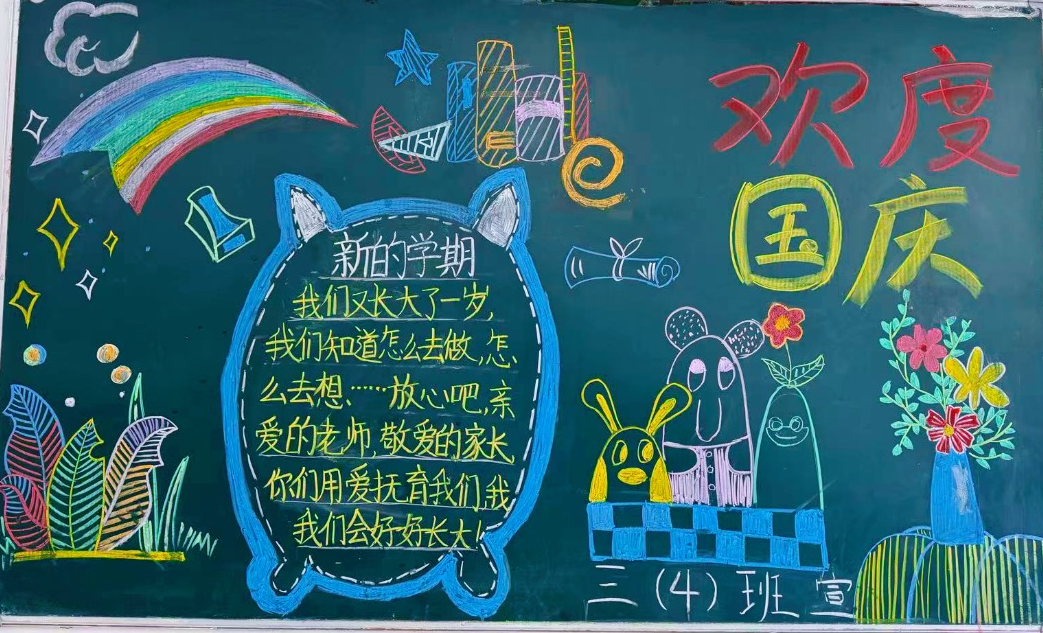 欢度
国庆
新的学期
我们又长大了一岁,
我们知道怎么去做,怎
么去想、……放心吧,亲
爱的老师,敬爱的家长,
你们用爱抚育我们,我
我们会好好长大!
三(4)班 宣